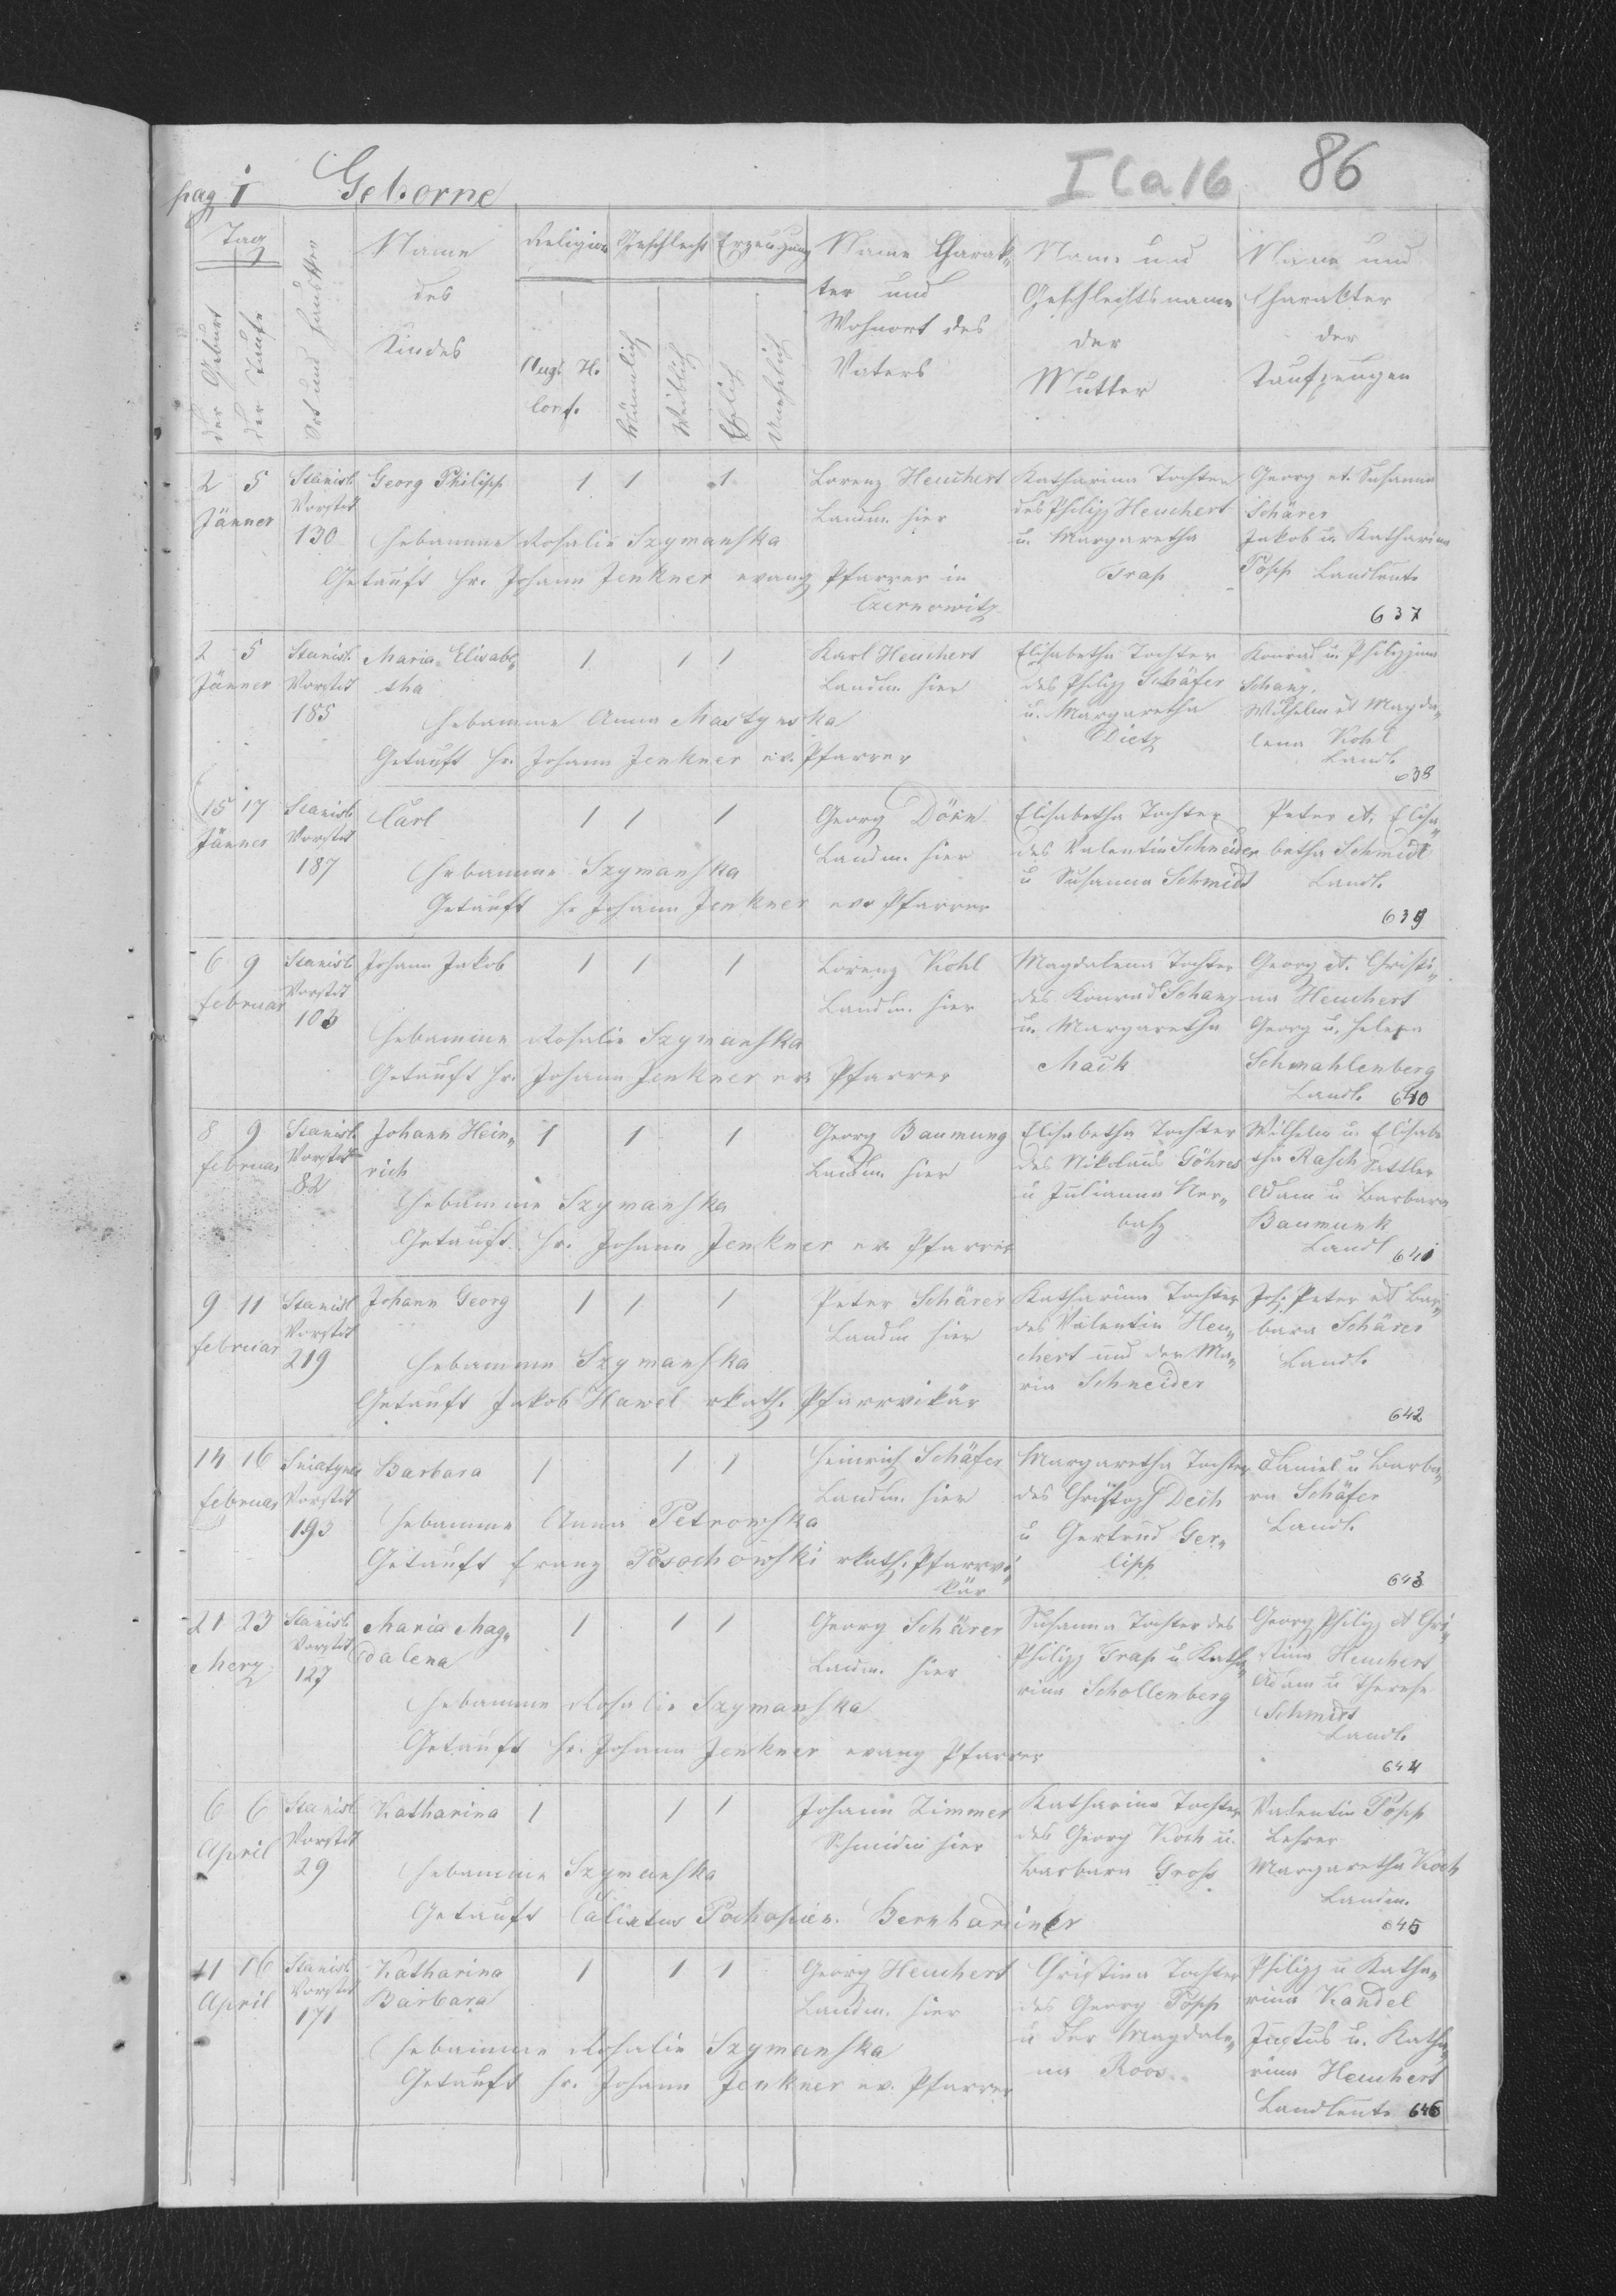 I Ca 16 86
pag. 1 Geborne
Tag
der Geburt
der Taufe
Ort und HausNro
Name
des
Kindes
Religion
Augs. H.
Conf.
Geschlecht
Männlich
Weiblich
Erzeugung
Ehelich
Unehelich
Name Charak„
ter und
Wohnort des
Vaters
Name und
Geschlechtsname
der
Mutter
Name und
Charakter
der
Taufzeugen
2 5
Jänner
Stanisl.
Vorstdt
130
Georg Philipp
1 1 1
Lorenz Heuchert
Landm. hier
Katharina Tochter
des Philipp Heuchert
u. Margaretha
Graß
Georg et. Susanna
Schärer
Jakob u. Katharina
Popp Landleute
Hebamme Rosalie Szymanska
Getauft Hr. Johann Jenkner evang Pfarrer in
Czernowitz
637
2 5
Jänner
Stanisl.
Vorstdt
185
Maria Elisabe„
tha
1 1 1
Karl Heuchert
Landm. hier
Elisabetha Tochter
des Philipp Schäfer
u. Margaretha
Dietz
Konrad u. Philippina
Schanz,
Wilhelm et Magda„
lena Kohl
Landl.
Hebamme Anna Mastynska
Getauft Hr. Johann Jenkner ev. Pfarrer
638
15 17
Jänner
Stanisl.
Vorstdt
187
Carl
1 1 1
Georg Dörn
Landm. hier
Elisabetha Tochter
des Valentin Schneider
u Susanna Schmidt
Peter et. Elisa„
betha Schmidt
Landl.
Hebamme Szymanska
Getauft Hr Johann Jenkner ev. Pfarrer
639
6 9
Februar
Stanisl.
Vorstdt
103
Johann Jakob
1 1 1
Lorenz Kohl
Landm. hier
Magdalena Tochter
des Konrad Schanz
u. Margaretha
Mack
Georg et. Christi„
na Heuchert
Georg u. Helena
Schmahlenberg
Landl.
Hebamme Rosalie Szymanska
Getauft Hr. Johann Jenkner ev. Pfarrer
640
8 9
Februar
Stanisl.
Vorstdt
82
Johann Hein„
rich
1 1 1
Georg Baumung
Landm. hier
Elisabetha Tochter
des Nikolaus Göhres
u Julianna Ner„
baß
Wilhelm u. Elisabe
tha Rasch Sattler
Adam u Barbara
Baumunk
Landl
Hebamme Szymanska
Getauft Hr. Johann Jenkner ev. Pfarrer
641
9 11
Februar
Stanisl
Vorstdt
219
Johann Georg
1 1 1
Peter Schärer
Landm hier
Katharina Tochter
des Valentin Heu„
chert und der Ma„
ria Schneider
Joh. Peter et Bar„
bara Schärer
Landl.
Hebamme Szymanska
Getauft Jakob Hawel rkath. Pfarrvikär
642
14 16
Februar
Sniatyner
Vorstdt
193
Barbara
1 1 1
Heinrich Schäfer
Landm. hier
Margaretha Tochter
des Christoph Deih
u Gertrud Ger„
lipp
Daniel u Barba„
ra Schäfer
Landl.
Hebamme Anna Petrowska
Getauft Franz Posochowski rkath. Pfarrvi„
kär
643
21 23
Merz
Stanisl.
Vorstdt
127
Maria Mag„
dalena
1 1 1
Georg Schärer
Landm. hier
Susanna Tochter des
Philipp Graß u Katha„
rina Schollenberg
Georg Philipp et Chri„
stina Heuchert
Adam u Therese
Schmidt
Landl.
Hebamme Rosalie Szymanska
Getauft Hr. Johann Jenkner evang Pfarrer
644
6 6
April
Stanisl
Vorstdt
29
Katharina
1 1 1
Johann Zimmer
Schmidm hier
Katharina Tochter
des Georg Koch u.
Barbara Groß
Valentin Popp
Lehrer
Margaretha Koch
Landm.
Hebamme Szymanska
Getauft Calixtus Bernhardiner
645
11 16
April
Stanisl.
Vorstdt
171
Katharina
Barbara
1 1 1
Georg Heuchert
Landm. hier
Christina Tochter
des Georg Popp
u der Magdale„
na Roos
Philipp u Katha„
rina Kandel
Justus u. Katha„
rina Heuchert
Landleute 646
Hebamme Rosalie Szymanska
Getauft Hr. Johann Jenkner ev. Pfarrer